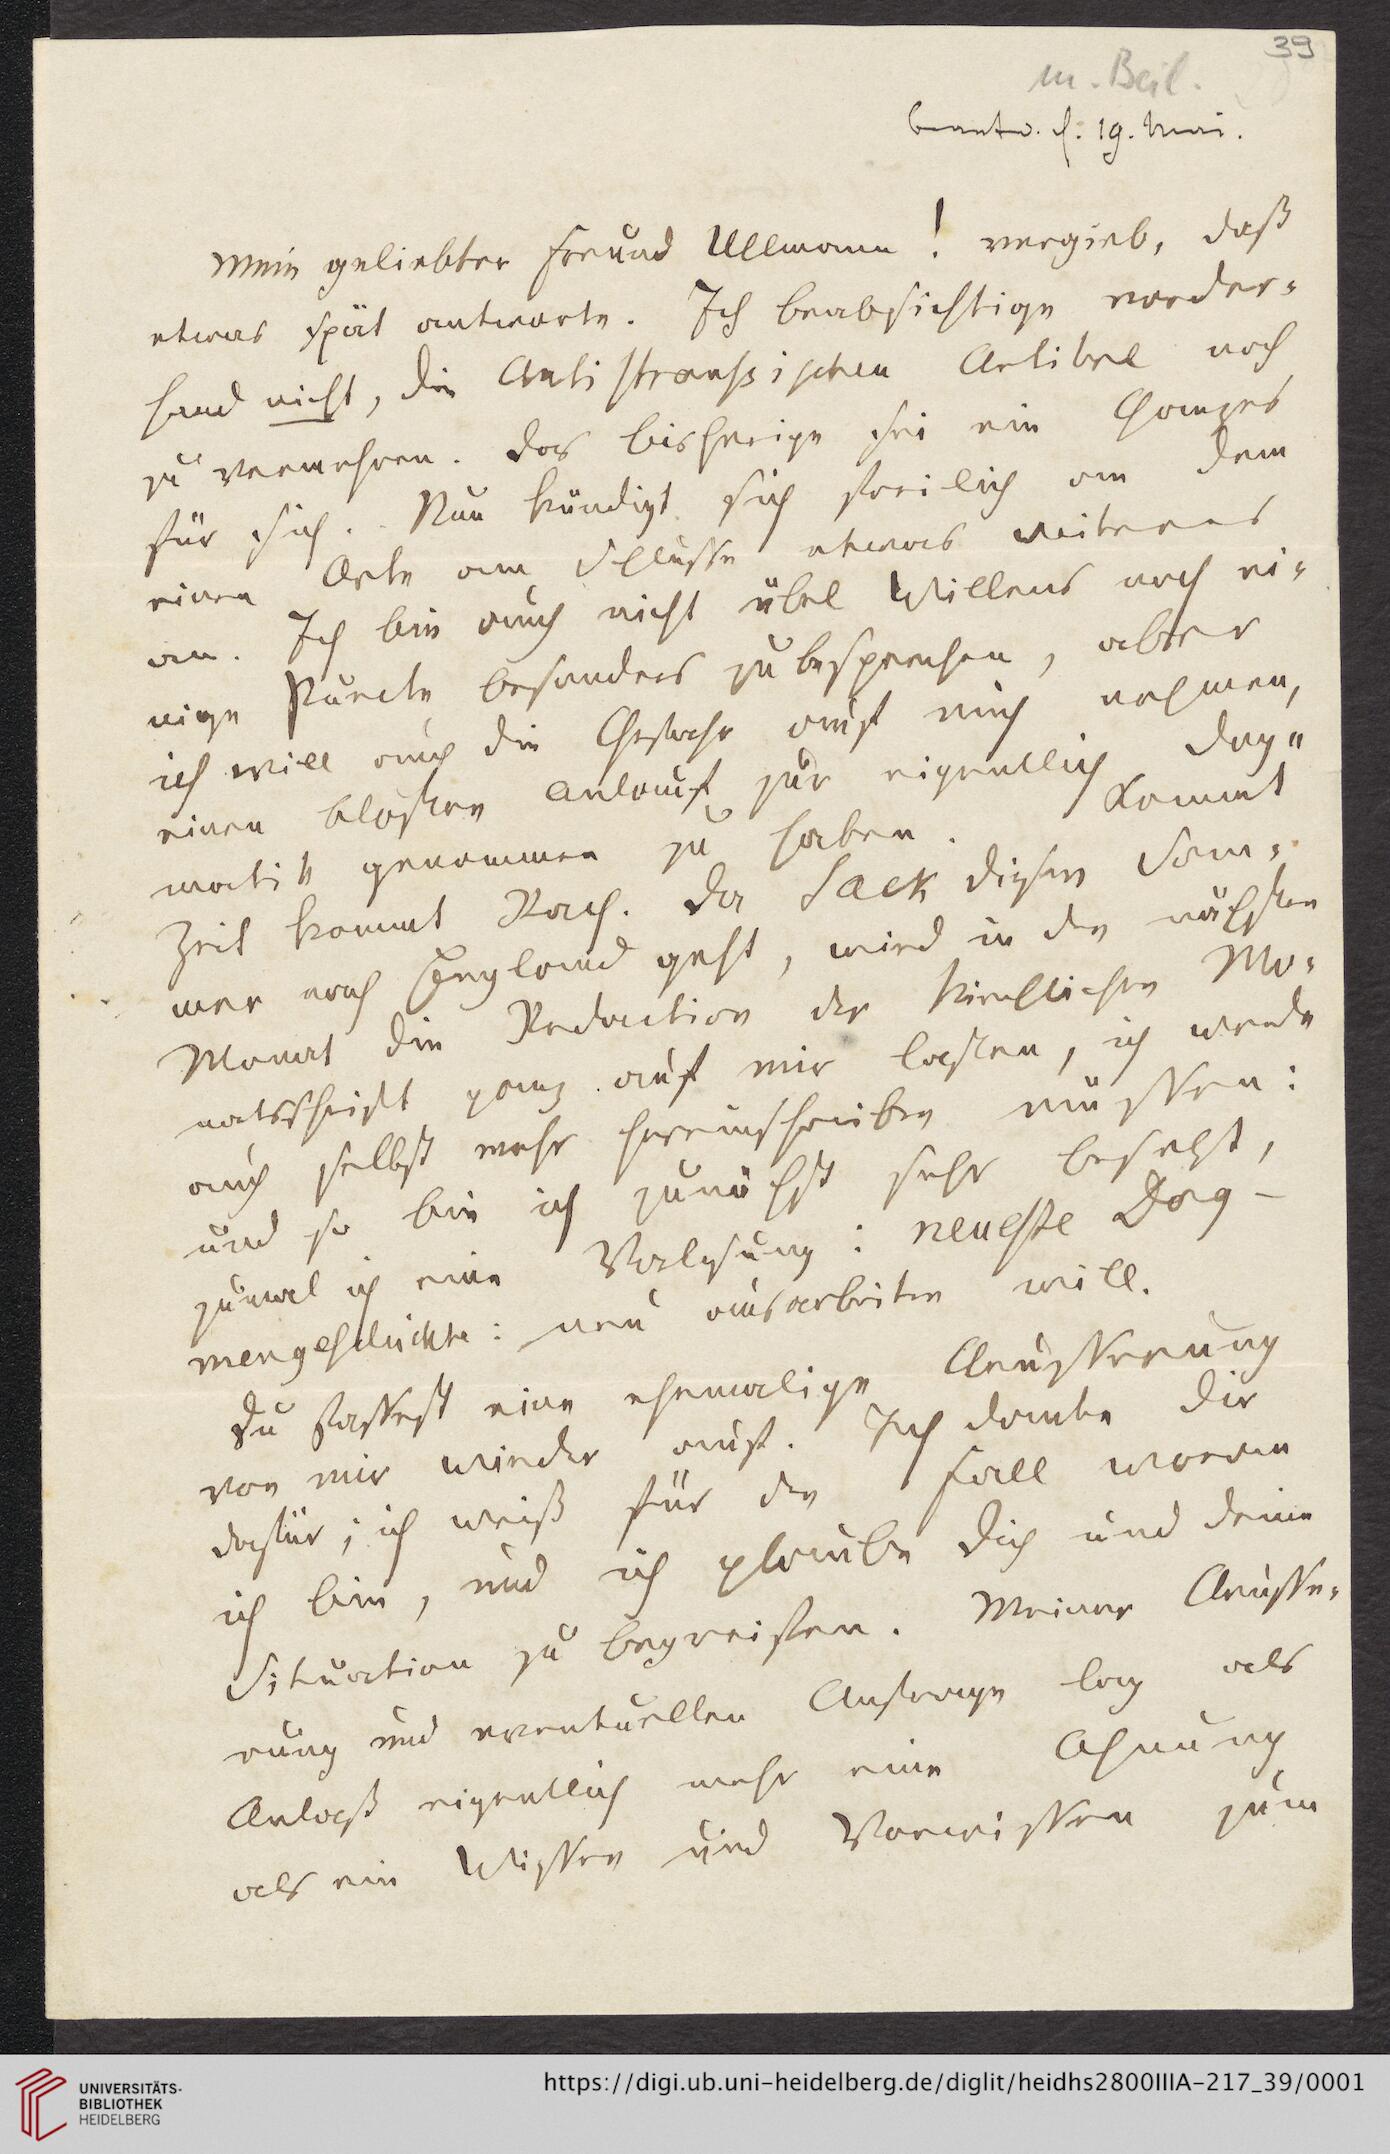 39
m. Beil.
beantw. d. 19. Mai.
Mein geliebter Freund Ullmann! vergieb, daß
etwas spät antworte. Ich beabsichtige vorder-
hand nicht, die Antistraußischen Artikel noch
zu vermehren. Das bisherige sei ein Ganzes
für sich. Nun kündigt sich freilich an dem
einen Orte am Schlusse etwas weiteres
an. Ich bin auch nicht übel Willens noch ei-
nige Puncte besonders zu besprechen, aber
ich will auch die Gefahr auf mich nehmen,
einen bloßen Anlauf zur eigentlich Dog-
matik genommen zu haben. Kommt
Zeit kommt Rath. Da Sack diesen Som-
mer nach England geht, wird in den nächsten
Monat die Redaction der kirchlichen Mo-
natsschrift ganz auf mir lasten, ich werde
auch selbst mehr hereinschreiben müssen:
und so bin ich zunächst sehr besetzt,
zumal ich eine Vorlesung: neueste Dog-
mengeschichte: neu ausarbeiten will.
Du fassest eine ehemalige Aeusserung
von mir wieder auf. Ich danke Dir
dafür; ich weiß für den Fall woran
ich bin, und ich glaube Dich und deine
Situation zu begreifen. Meiner Aeusse-
rung und eventuellen Anfrage lag als
Anlaß eigentlich mehr eine Ahnung
als ein Wissen und Vorwissen zum
UNIVERSITÄTS-
BIBLIOTHEK
HEIDELBERG
https://digi.ub.uni-heidelberg.de/diglit/heidhs2800IIIA-217_39/0001